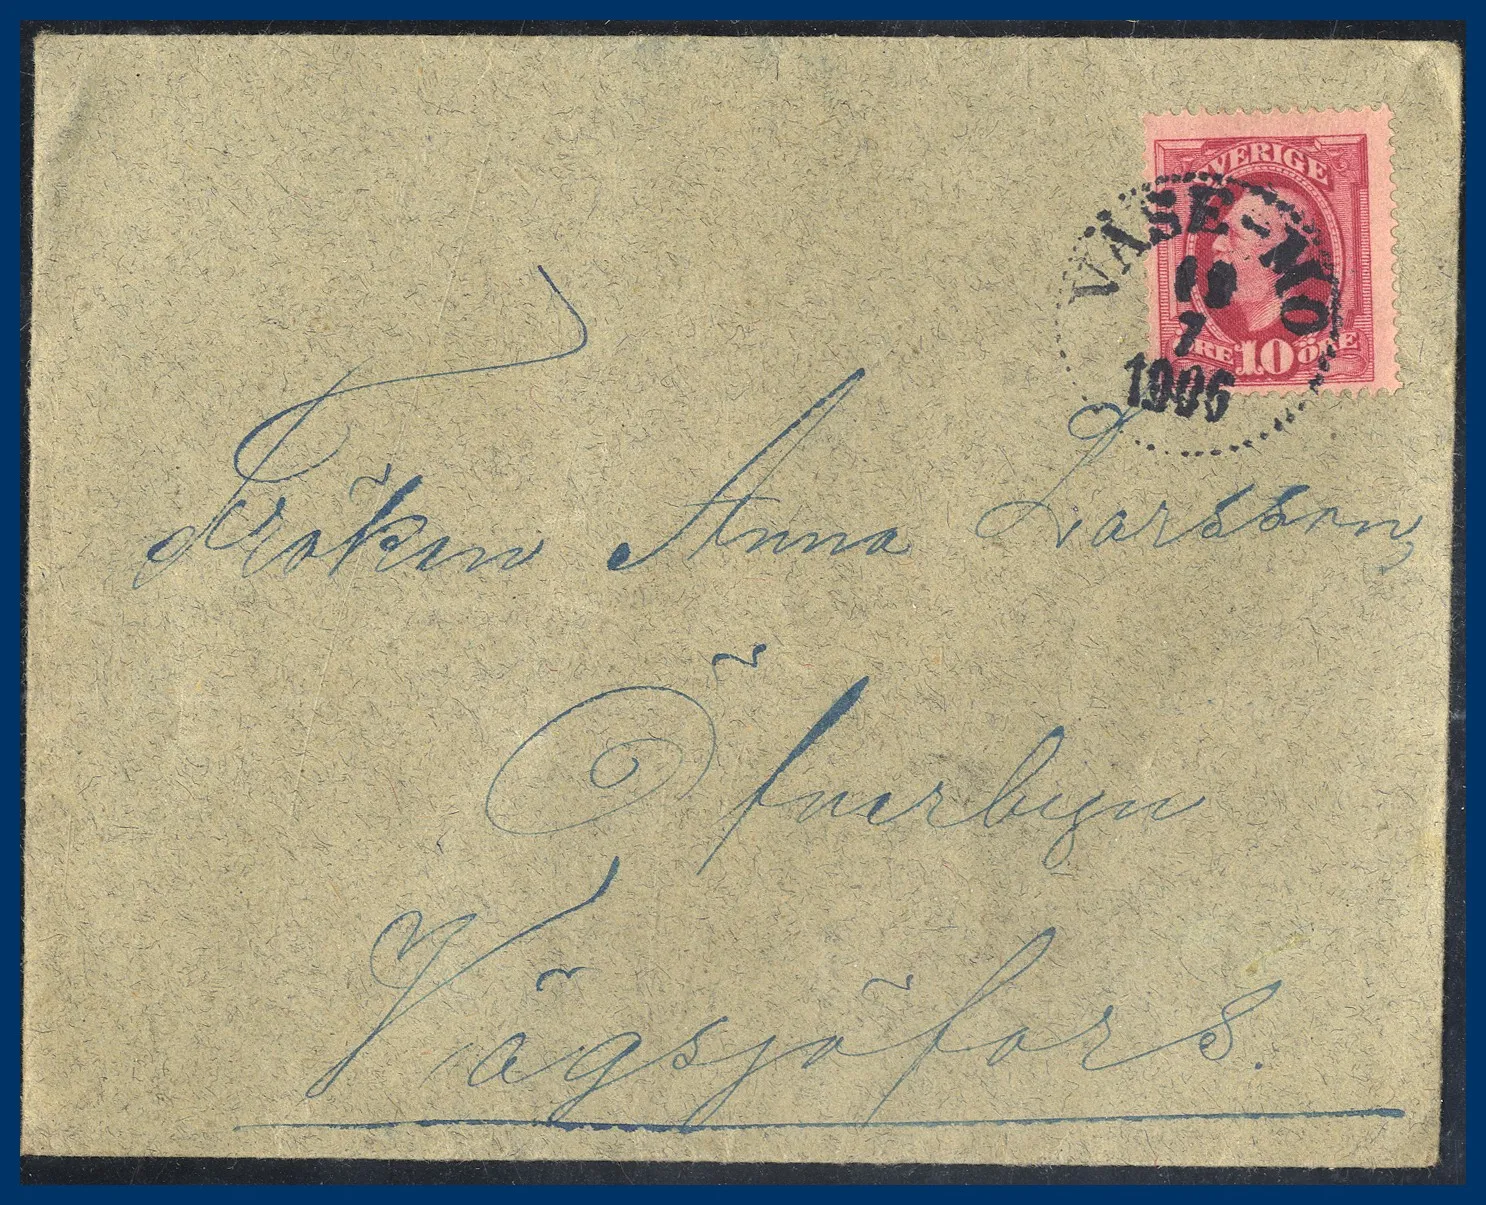 SVERIGE
ÖRE 10 ÖRE
VÄSE-MO
7
1906
Fröken Anna Larsson,
Öfverbyn
Vägsjöfors.